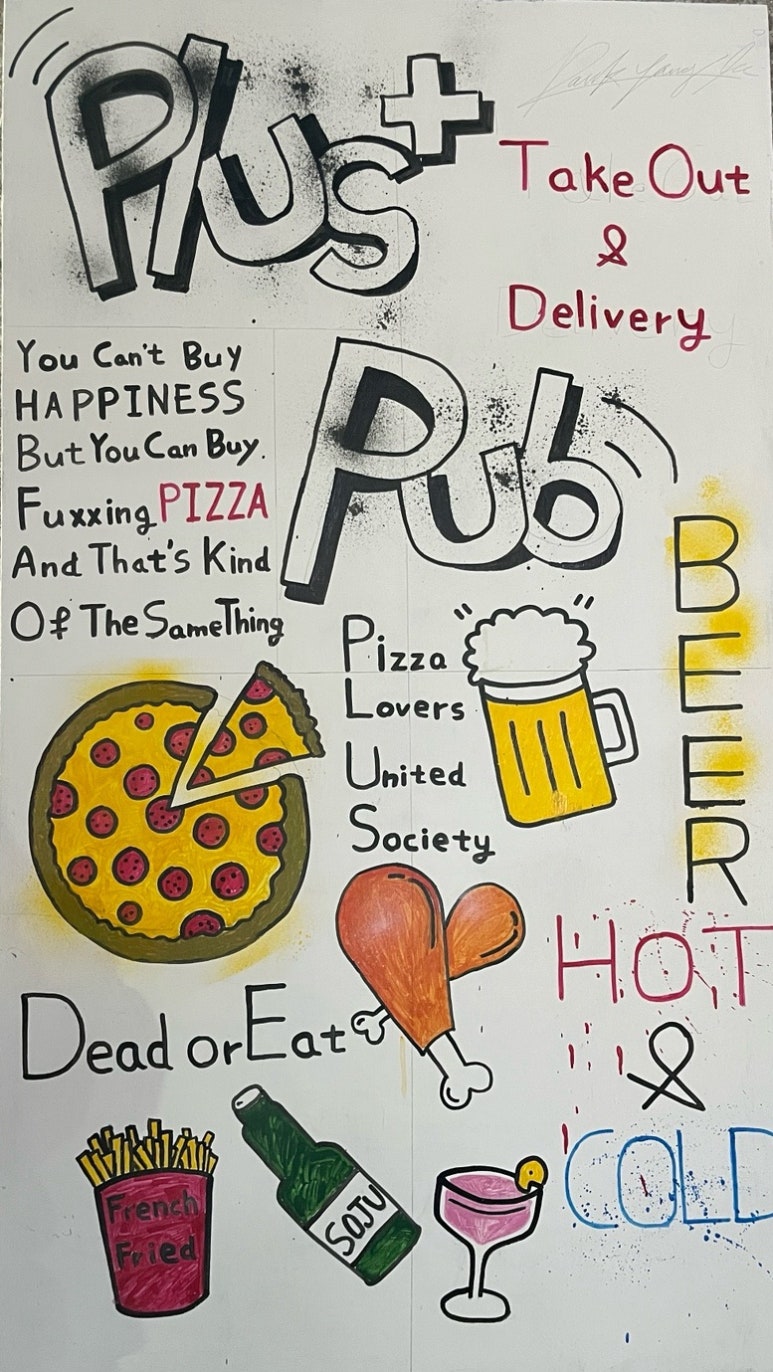 Plus+
Take Out
&
Delivery
You Can't Buy
HAPPINESS
But You Can Buy.
Fuxxing PIZZA
And That's Kind
Of The Same Thing
Pub
Pizza
Lovers
United
Society
BEER
Dead or Eat
HOT
&
COLD
French
Fried
SOJU